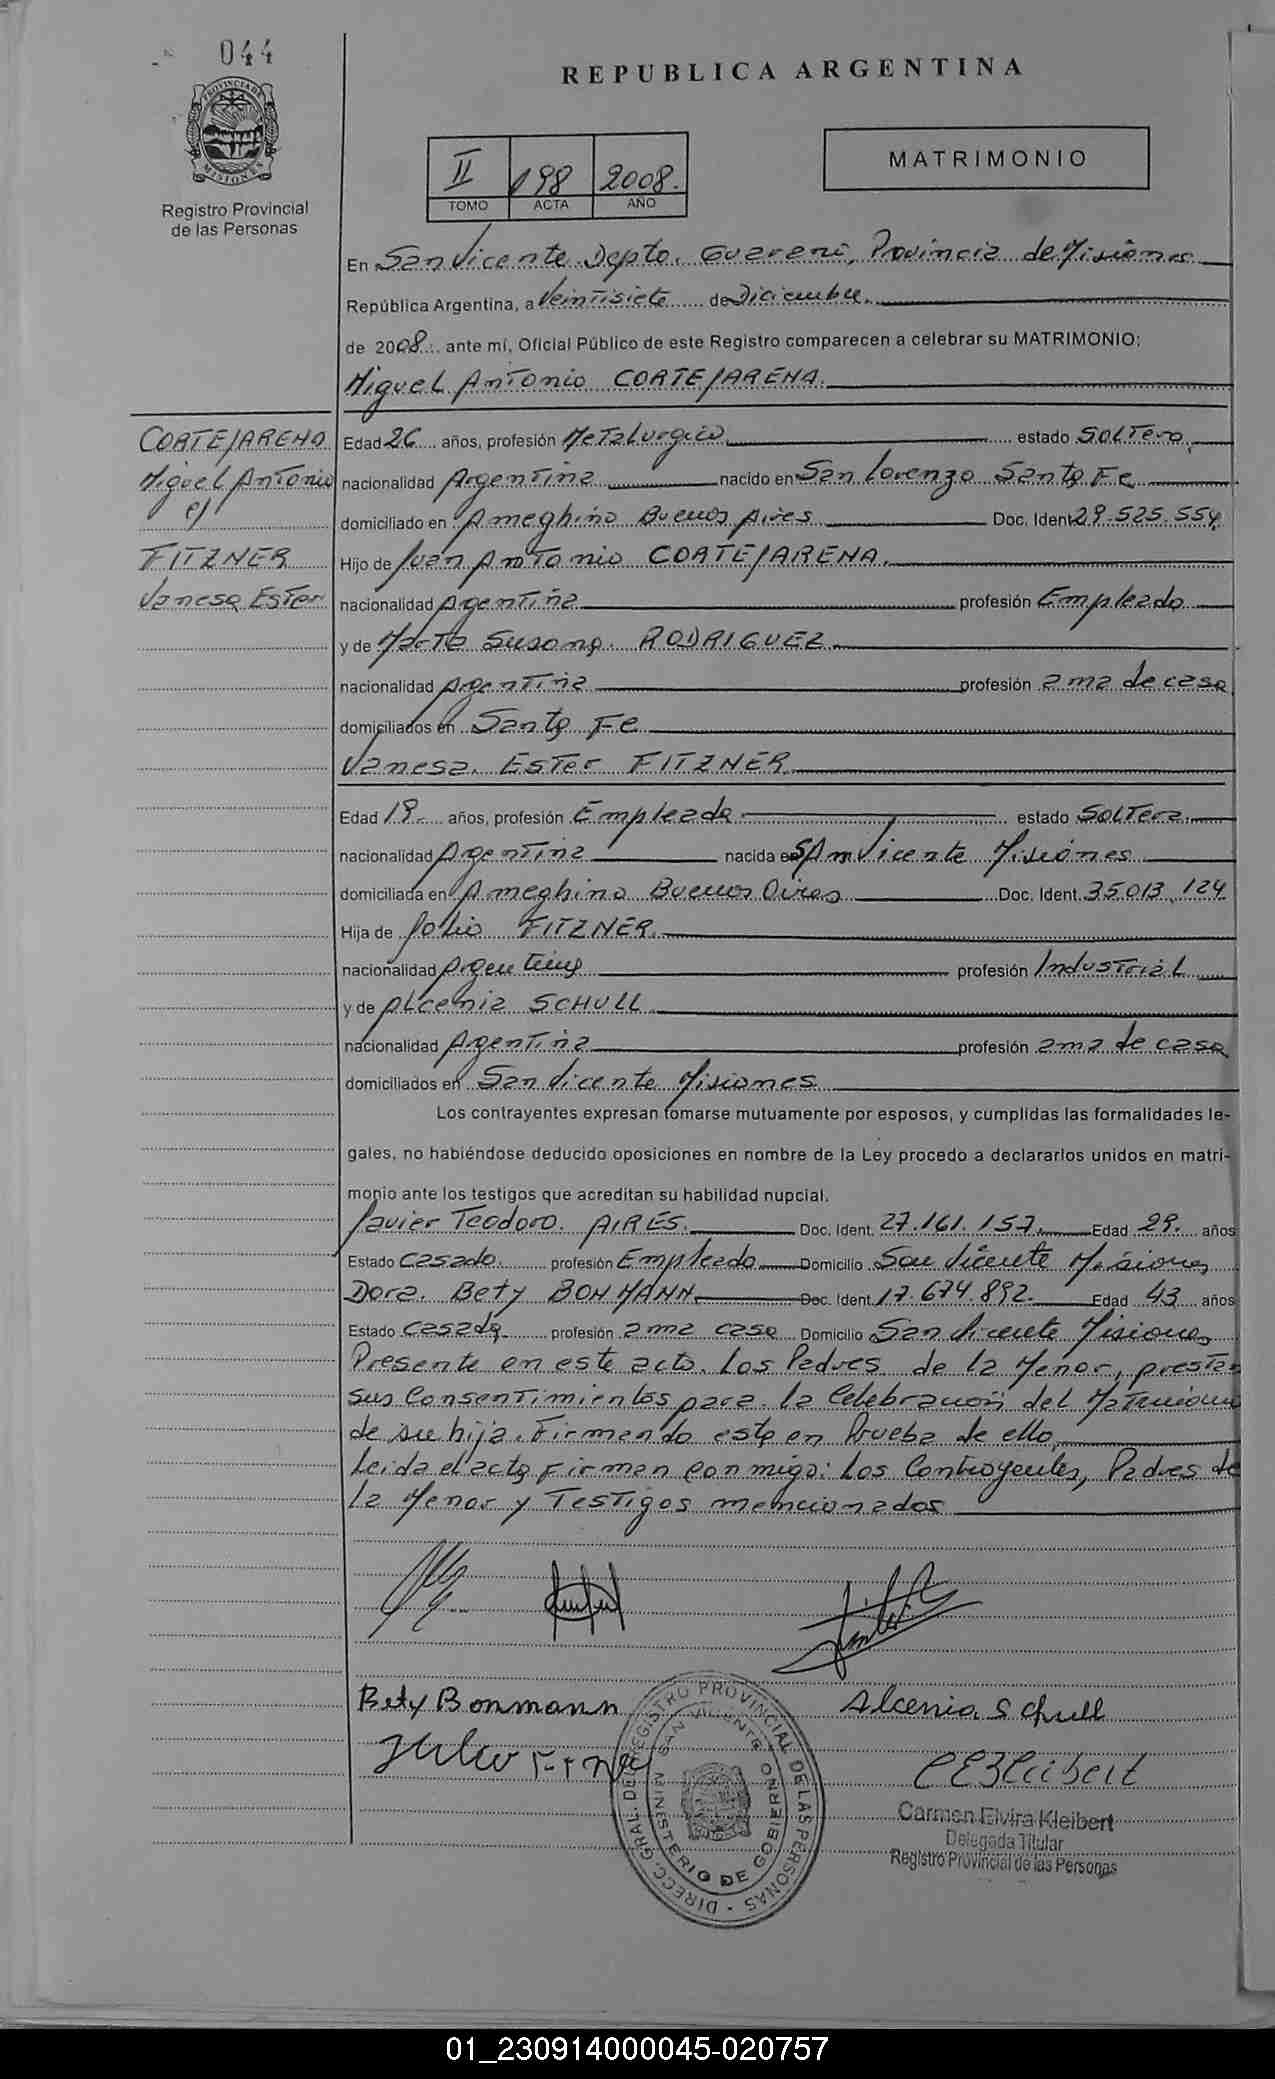 044
PROVINCIA DE
MISIONES
Registro Provincial
de las Personas
REPUBLICA ARGENTINA
II 198 2008.
TOMO ACTA AÑO
MATRIMONIO
En San Vicente Depto. Guarani, Provincia de Misiones
República Argentina, a Veintisiete de Diciembre.
de 2008. ante mí, Oficial Público de este Registro comparecen a celebrar su MATRIMONIO:
Miguel Antonio CORTEJARENA.
CORTEJARENA
Miguel Antonio
c/
FITZNER
Vanesa Ester
Edad 26 años, profesión Metalurgico estado Soltero
nacionalidad Argentina nacido en San Lorenzo Santa Fe
domiciliado en Ameghino Buenos Aires Doc. Ident 29.525.554
Hijo de Juan Antonio CORTEJARENA.
nacionalidad Argentina profesión Empleado
y de Marta Susana. RODRIGUEZ
nacionalidad Argentina profesión ama de casa
domiciliados en Santa Fe
Vanesa. Ester FITZNER
Edad 19 años, profesión Empleada estado Soltera
nacionalidad Argentina nacida en San Vicente Misiones
domiciliada en Ameghino Buenos Aires Doc. Ident. 35.013.124
Hija de Julio FITZNER.
nacionalidad Argentina profesión Industrial
y de Alcenia SCHULL
nacionalidad Argentina profesión ama de casa
domiciliados en San Vicente Misiones
Los contrayentes expresan tomarse mutuamente por esposos, y cumplidas las formalidades le-
gales, no habiéndose deducido oposiciones en nombre de la Ley procedo a declararlos unidos en matri-
monio ante los testigos que acreditan su habilidad nupcial.
Javier Teodoro. AIRES. Doc. Ident. 27.161.157. Edad 29. años
Estado Casado. profesión Empleado Domicilio San Vicente Misiones
Dora. Bety BONMANN. Doc. Ident. 17.674.892. Edad 43 años
Estado Casada profesión ama casa Domicilio San Vicente Misiones
Presente en este acto. Los Padres de la Menor, prestan
sus Consentimientos para la Celebración del Matrimonio
de su hija. Firmando esta en Prueba de ello
Leida el acta firman conmigo: Los Contrayentes, Padres de
la Menor y Testigos mencionados
Bety Bonmann
Alcenia Schull
Julio
CEKleibert
Carmen Elvira Kleibert
Delegada Titular
Registro Provincial de las Personas
DIRECC. GRAL. DEL REGISTRO PROVINCIAL DE LAS PERSONAS -
SAN VICENTE
MINISTERIO DE GOBIERNO
01_230914000045-020757